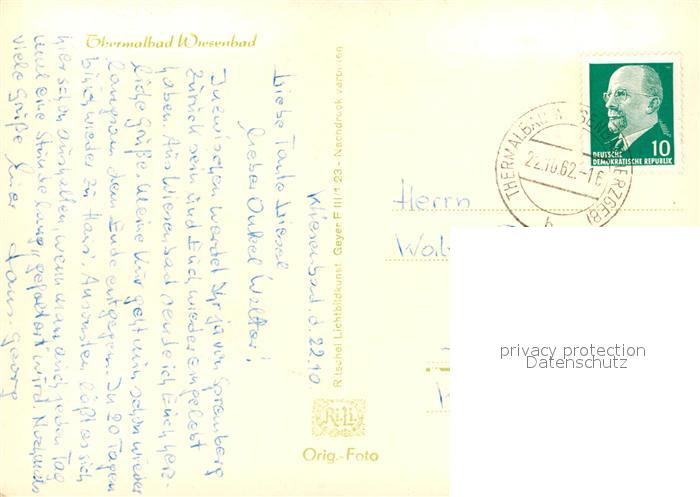 Thermalbad Wiesenbad
Wiesenbad, d. 22.10.
Liebe Tante Liesel
lieber Onkel Walter!
Inzwischen werdet Ihr ja von Spremberg
zurück sein und Euch wieder eingelebt
haben. Aus Wiesenbad sende ich Euch herz-
liche Grüße. Meine Kur geht nun schon wieder
langsam dem Ende entgegen. In 20 Tagen
bin ich wieder zu Haus. Ansonsten läßt es sich
hier schon aushalten, wenn man auch jeden Tag
eine Stunde lang „gefoltert" wird. Nochmals
viele Grüße Euer Hans-Georg
Ritschel Lichtbildkunst Geyer F III/1 23 - Nachdruck verboten
Ri.Li.
Orig.-Foto
THERMALBAD WIESENBAD (ERZGEB)
22.10.62.-16
b
10
DEUTSCHE
DEMOKRATISCHE REPUBLIK
Herrn
privacy protection
Datenschutz